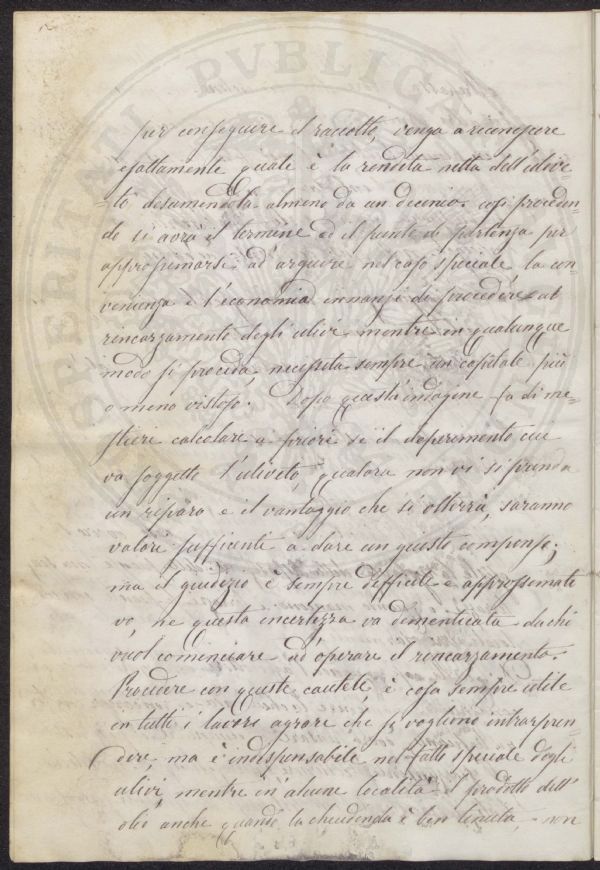 per conseguire il raccolto, venga a riconoscere
esattamente quale è la rendita netta dell'ulive-
-to desumendola almeno da un decenio. così proceden-
do si avrà il termine ed il punto di partenza per
approssimarsi ad arguire nel caso speciale la con
venienza e l'economia innanzi di procedere al
rincarzamento degli ulivi mentre in qualunque
modo si proceda, necessita sempre un capitale più
o meno vistoso. Dopo quest'indagine fa di me-
stieri calcolare a priori se il deperimento cui
va soggetto l'uliveto, qualora non vi si prenda
un riparo e il vantaggio che si otterrà, saranno
valore sufficienti a dare un giusto compenso;
ma il giudizio è sempre difficile e approssimati
vo, ne questa incertezza va dimenticata da chi
vuol cominciare ad operare il rincarzamento.
Procedere con queste cautele è cosa sempre utile
in tutti i lavori agrari che si vogliono intrapren
dere, ma è indispensabile nel fatto speciale degli
ulivi, mentre in alcune località il prodotto dell'
olio anche quando la chiudenda è ben tenuta, non